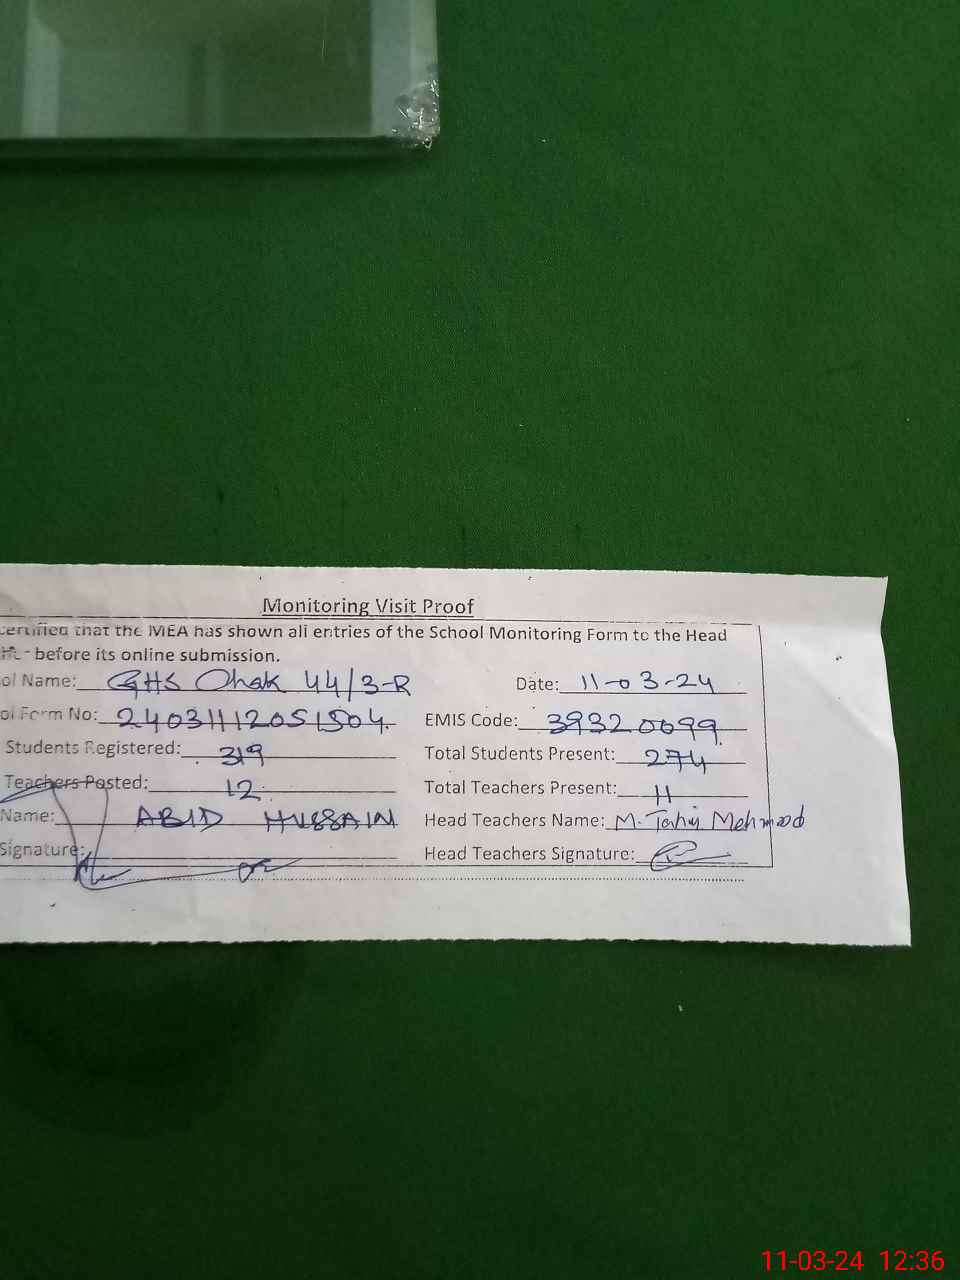 Monitoring Visit Proof
certified that the MEA has shown all entries of the School Monitoring Form to the Head
before its online submission.
ol Name: GHS Chak 44/3-R Date: 11-03-24
ol Form No: 24031112051504 EMIS Code: 39320099
Students Registered: 319 Total Students Present: 274
Teachers Posted: 12 Total Teachers Present: 11
Name: ABID HUSSAIN Head Teachers Name: M. Tahir Mehmood
Signature: Head Teachers Signature:
11-03-24 12:36